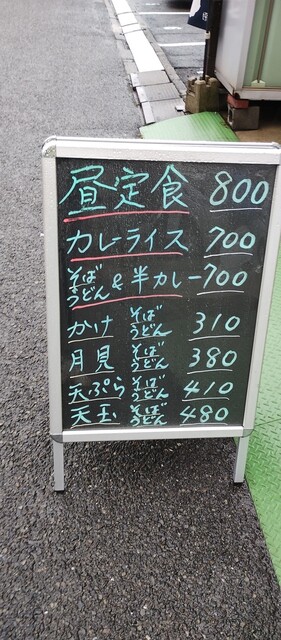 昼定食 800
カレーライス 700
そばうどん & 半カレー 700
かけ そばうどん 310
月見 そばうどん 380
天ぷら そばうどん 410
天玉 そばうどん 480